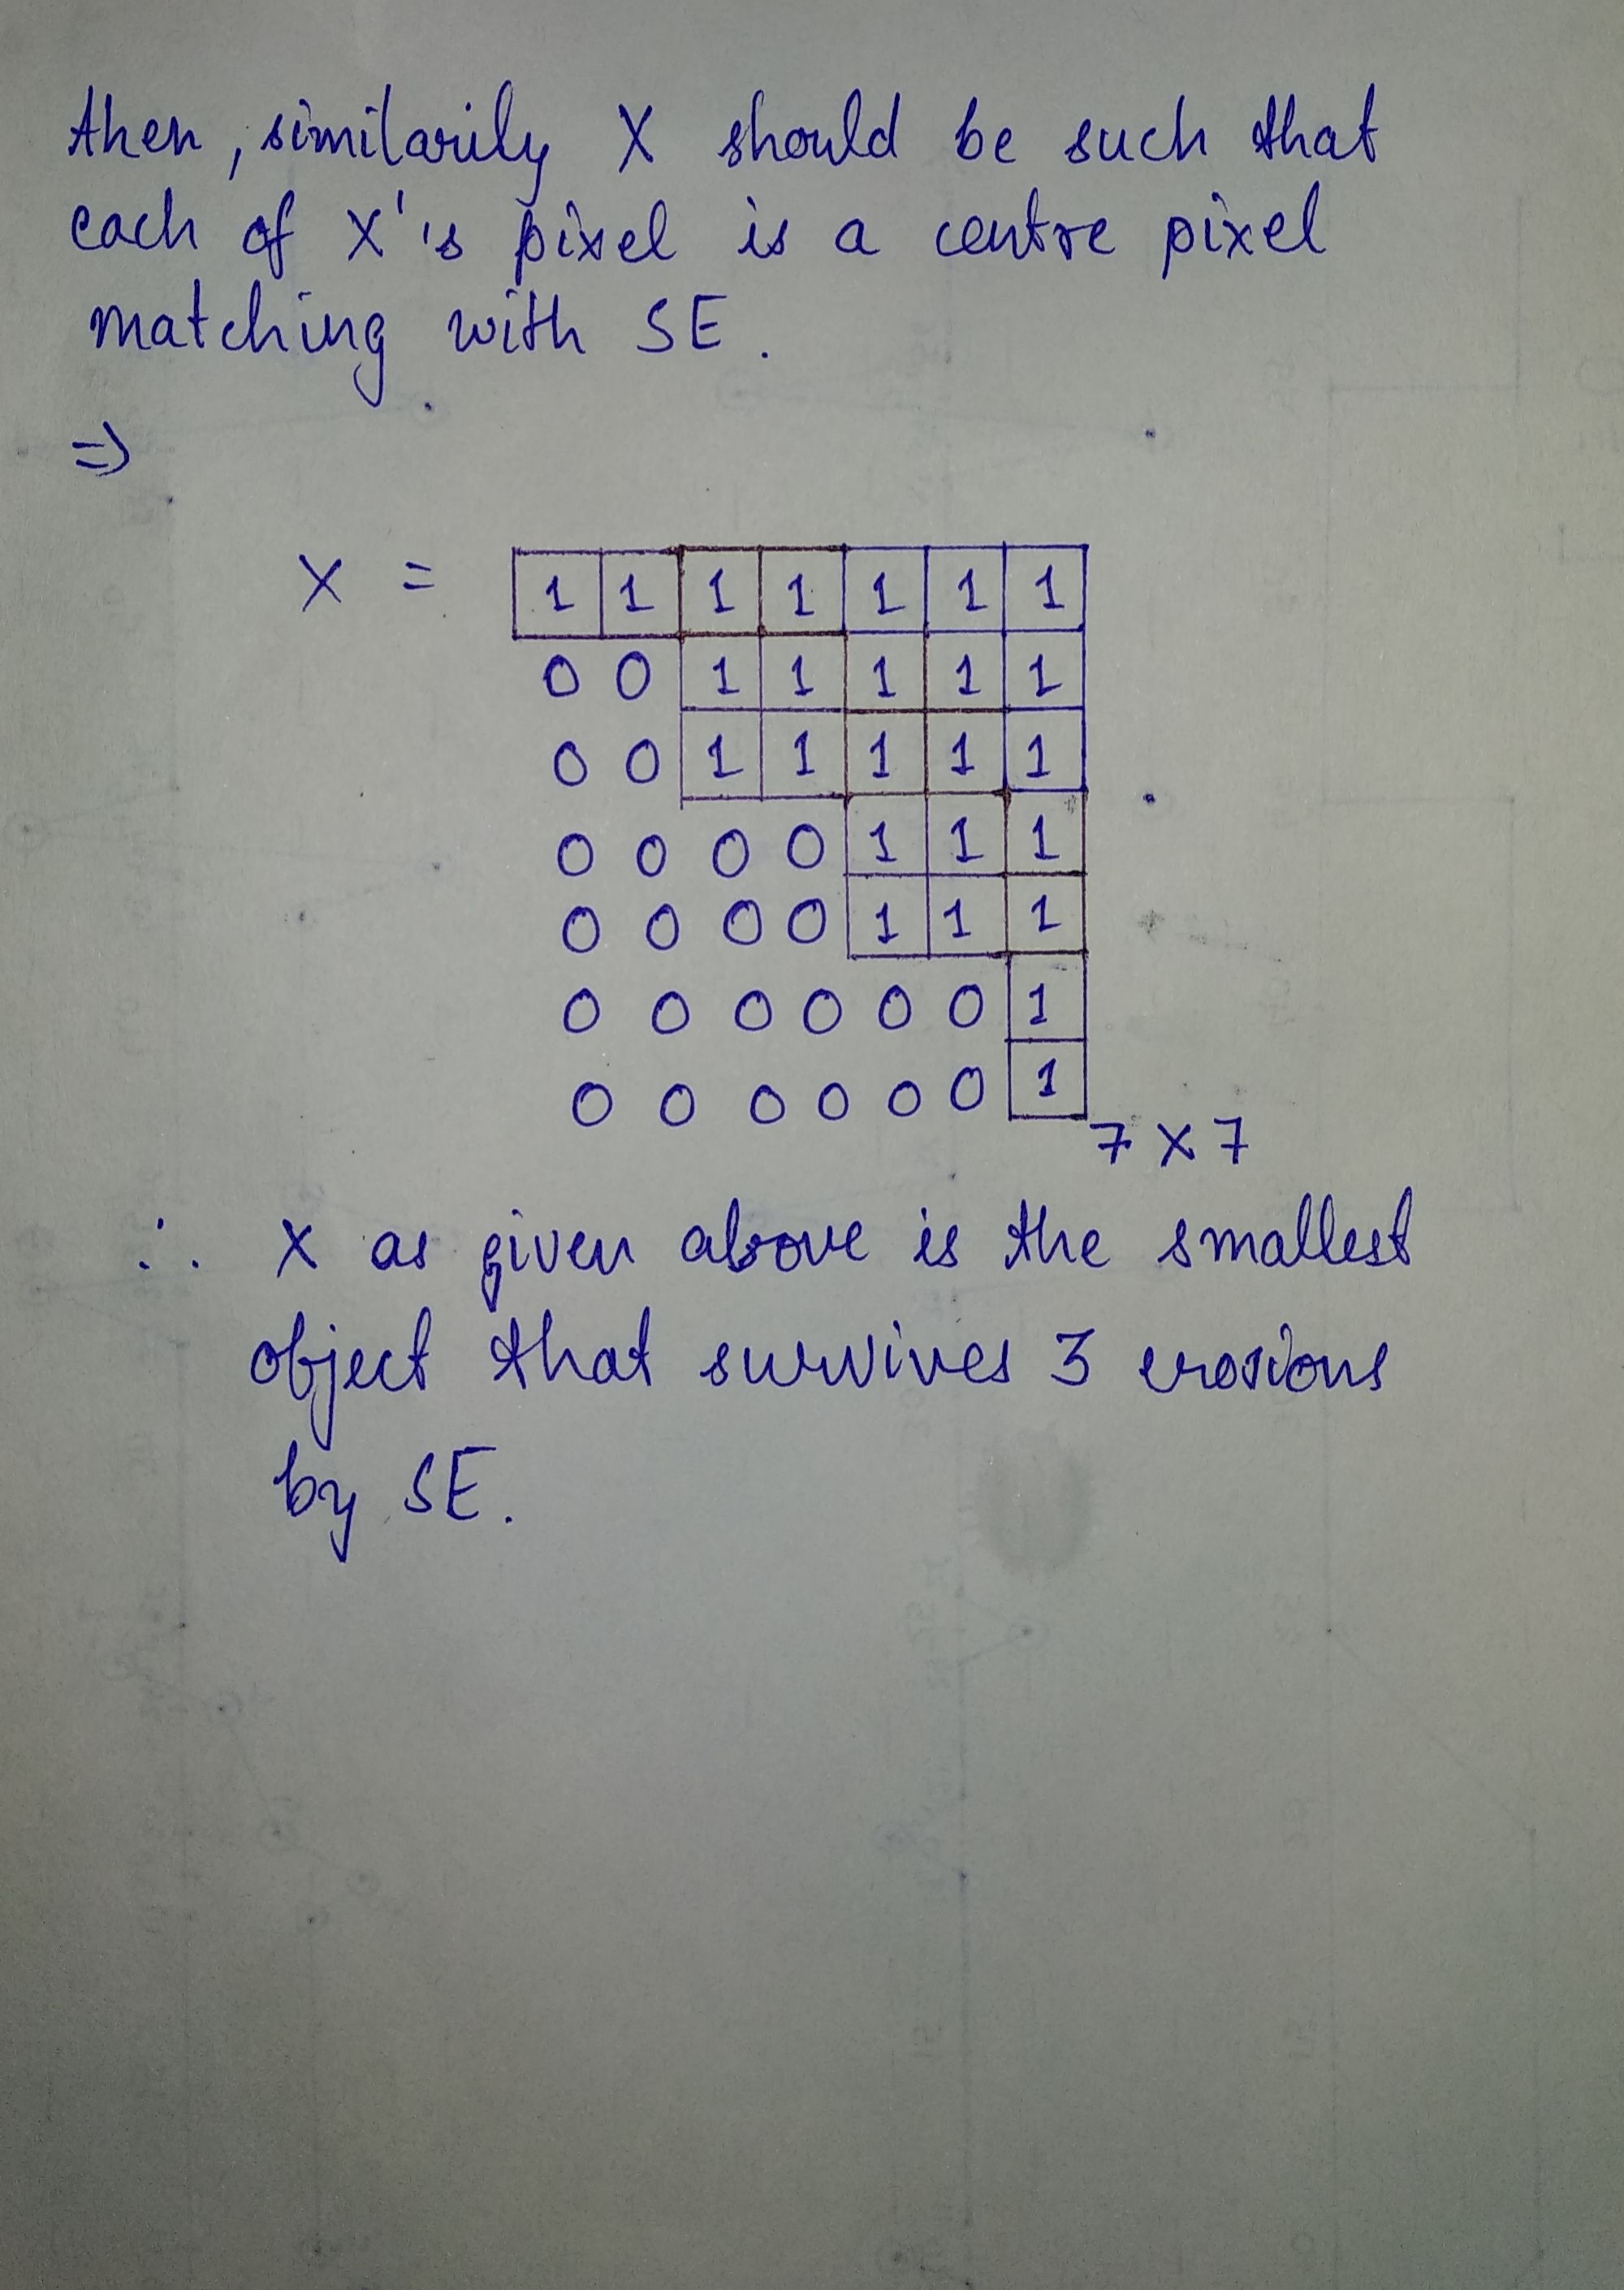 then, similarily X should be such that
each of X's pixel is a centre pixel
matching with SE.
⇒
X = 1 1 1 1 1 1 1
0 0 1 1 1 1 1
0 0 1 1 1 1 1
0 0 0 0 1 1 1
0 0 0 0 1 1 1
0 0 0 0 0 0 1
0 0 0 0 0 0 1
7 x 7
∴ X as given above is the smallest
object that survives 3 erosions
by SE.